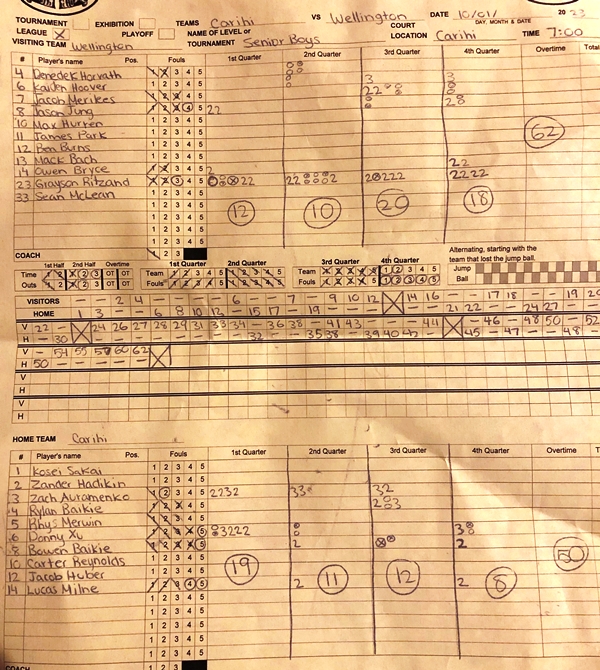 TOURNAMENT EXHIBITION TEAMS Carihi VS Wellington DATE 10/01/ 20 23
DAY, MONTH & DATE
LEAGUE X PLAYOFF NAME OF LEVEL or TOURNAMENT Senior Boys COURT LOCATION Carihi TIME 7:00
VISITING TEAM Wellington
# Player's name Pos. Fouls 1st Quarter 2nd Quarter 3rd Quarter 4th Quarter Overtime Total
4 Denedek Horvath 1 2 3 4 5 3 3
6 Kaiden Hoover 1 2 3 4 5 22
7 Jacob Merikes 1 2 3 4 5 28
8 Jason Jung 1 2 3 4 5 22
10 Max Hurren 1 2 3 4 5
11 James Park 1 2 3 4 5 62
12 Ben Burns 1 2 3 4 5
13 Mack Bach 1 2 3 4 5 22
14 Owen Bryce 1 2 3 4 5 2 2222
23 Grayson Ritzand 1 2 3 4 5
33 Sean McLean 1 2 3 4 5
12 10 20 18
COACH 1 2 3
1st Half 2nd Half Overtime 1st Quarter 2nd Quarter 3rd Quarter 4th Quarter
Alternating, starting with the team that lost the jump ball.
Time 1 2 1 2 3 OT OT Team 1 2 3 4 5 1 2 3 4 5 Team 1 2 3 4 5 1 2 3 4 5 Jump
Outs 1 2 1 2 3 OT OT Fouls 1 2 3 4 5 1 2 3 4 5 Fouls 1 2 3 4 5 1 2 3 4 5 Ball
VISITORS - - 2 4 - - - - - 6 - - 7 - 9 10 12 14 16 - - 17 18 - - 19 20
HOME 1 3 - - 6 8 10 12 - 15 17 - 19 - - - - - 21 22 - - 24 27 - -
V 22 - 24 26 27 28 29 31 33 34 - 36 38 - 41 43 - - - 44 - 46 - 48 50 - 52
H - 30 - - - - - - - - 32 - - 35 38 - - 39 40 42 - 45 - 47 - - 48 -
V - 54 55 57 60 62
H 50 - - - - -
V
H
V
H
HOME TEAM Carihi
# Player's name Pos. Fouls 1st Quarter 2nd Quarter 3rd Quarter 4th Quarter Overtime T
1 Kosei Sakai 1 2 3 4 5
2 Zander Hadikin 1 2 3 4 5
3 Zach Avramenko 1 2 3 4 5 2232 33 32
4 Rylan Baikie 1 2 3 4 5
5 Rhys Merwin 1 2 3 4 5
6 Donny Xu 1 2 3 4 5 3222 3
8 Bowen Baikie 1 2 3 4 5 2 2
10 Carter Reynolds 1 2 3 4 5 50
12 Jacob Huber 1 2 3 4 5
14 Lucas Milne 1 2 3 4 5 2 2
19 11 12 8
COACH 1 2 3